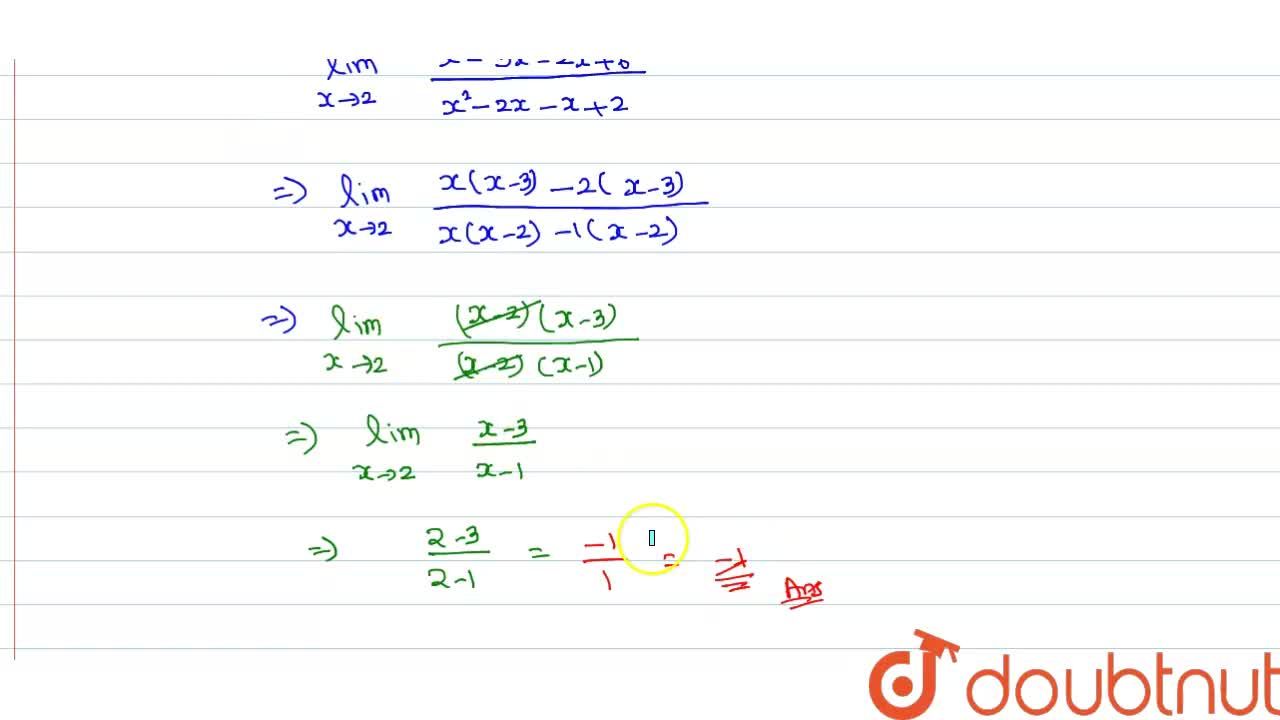 lim
x→2 x²-2x-x+2
=) lim x(x-3) -2(x-3)
x→2 x(x-2) -1(x-2)
=) lim (x-2)(x-3)
x→2 (x-2)(x-1)
=) lim x-3
x→2 x-1
=) 2-3 = -1 = -1
2-1 1 Ans
doubtnut